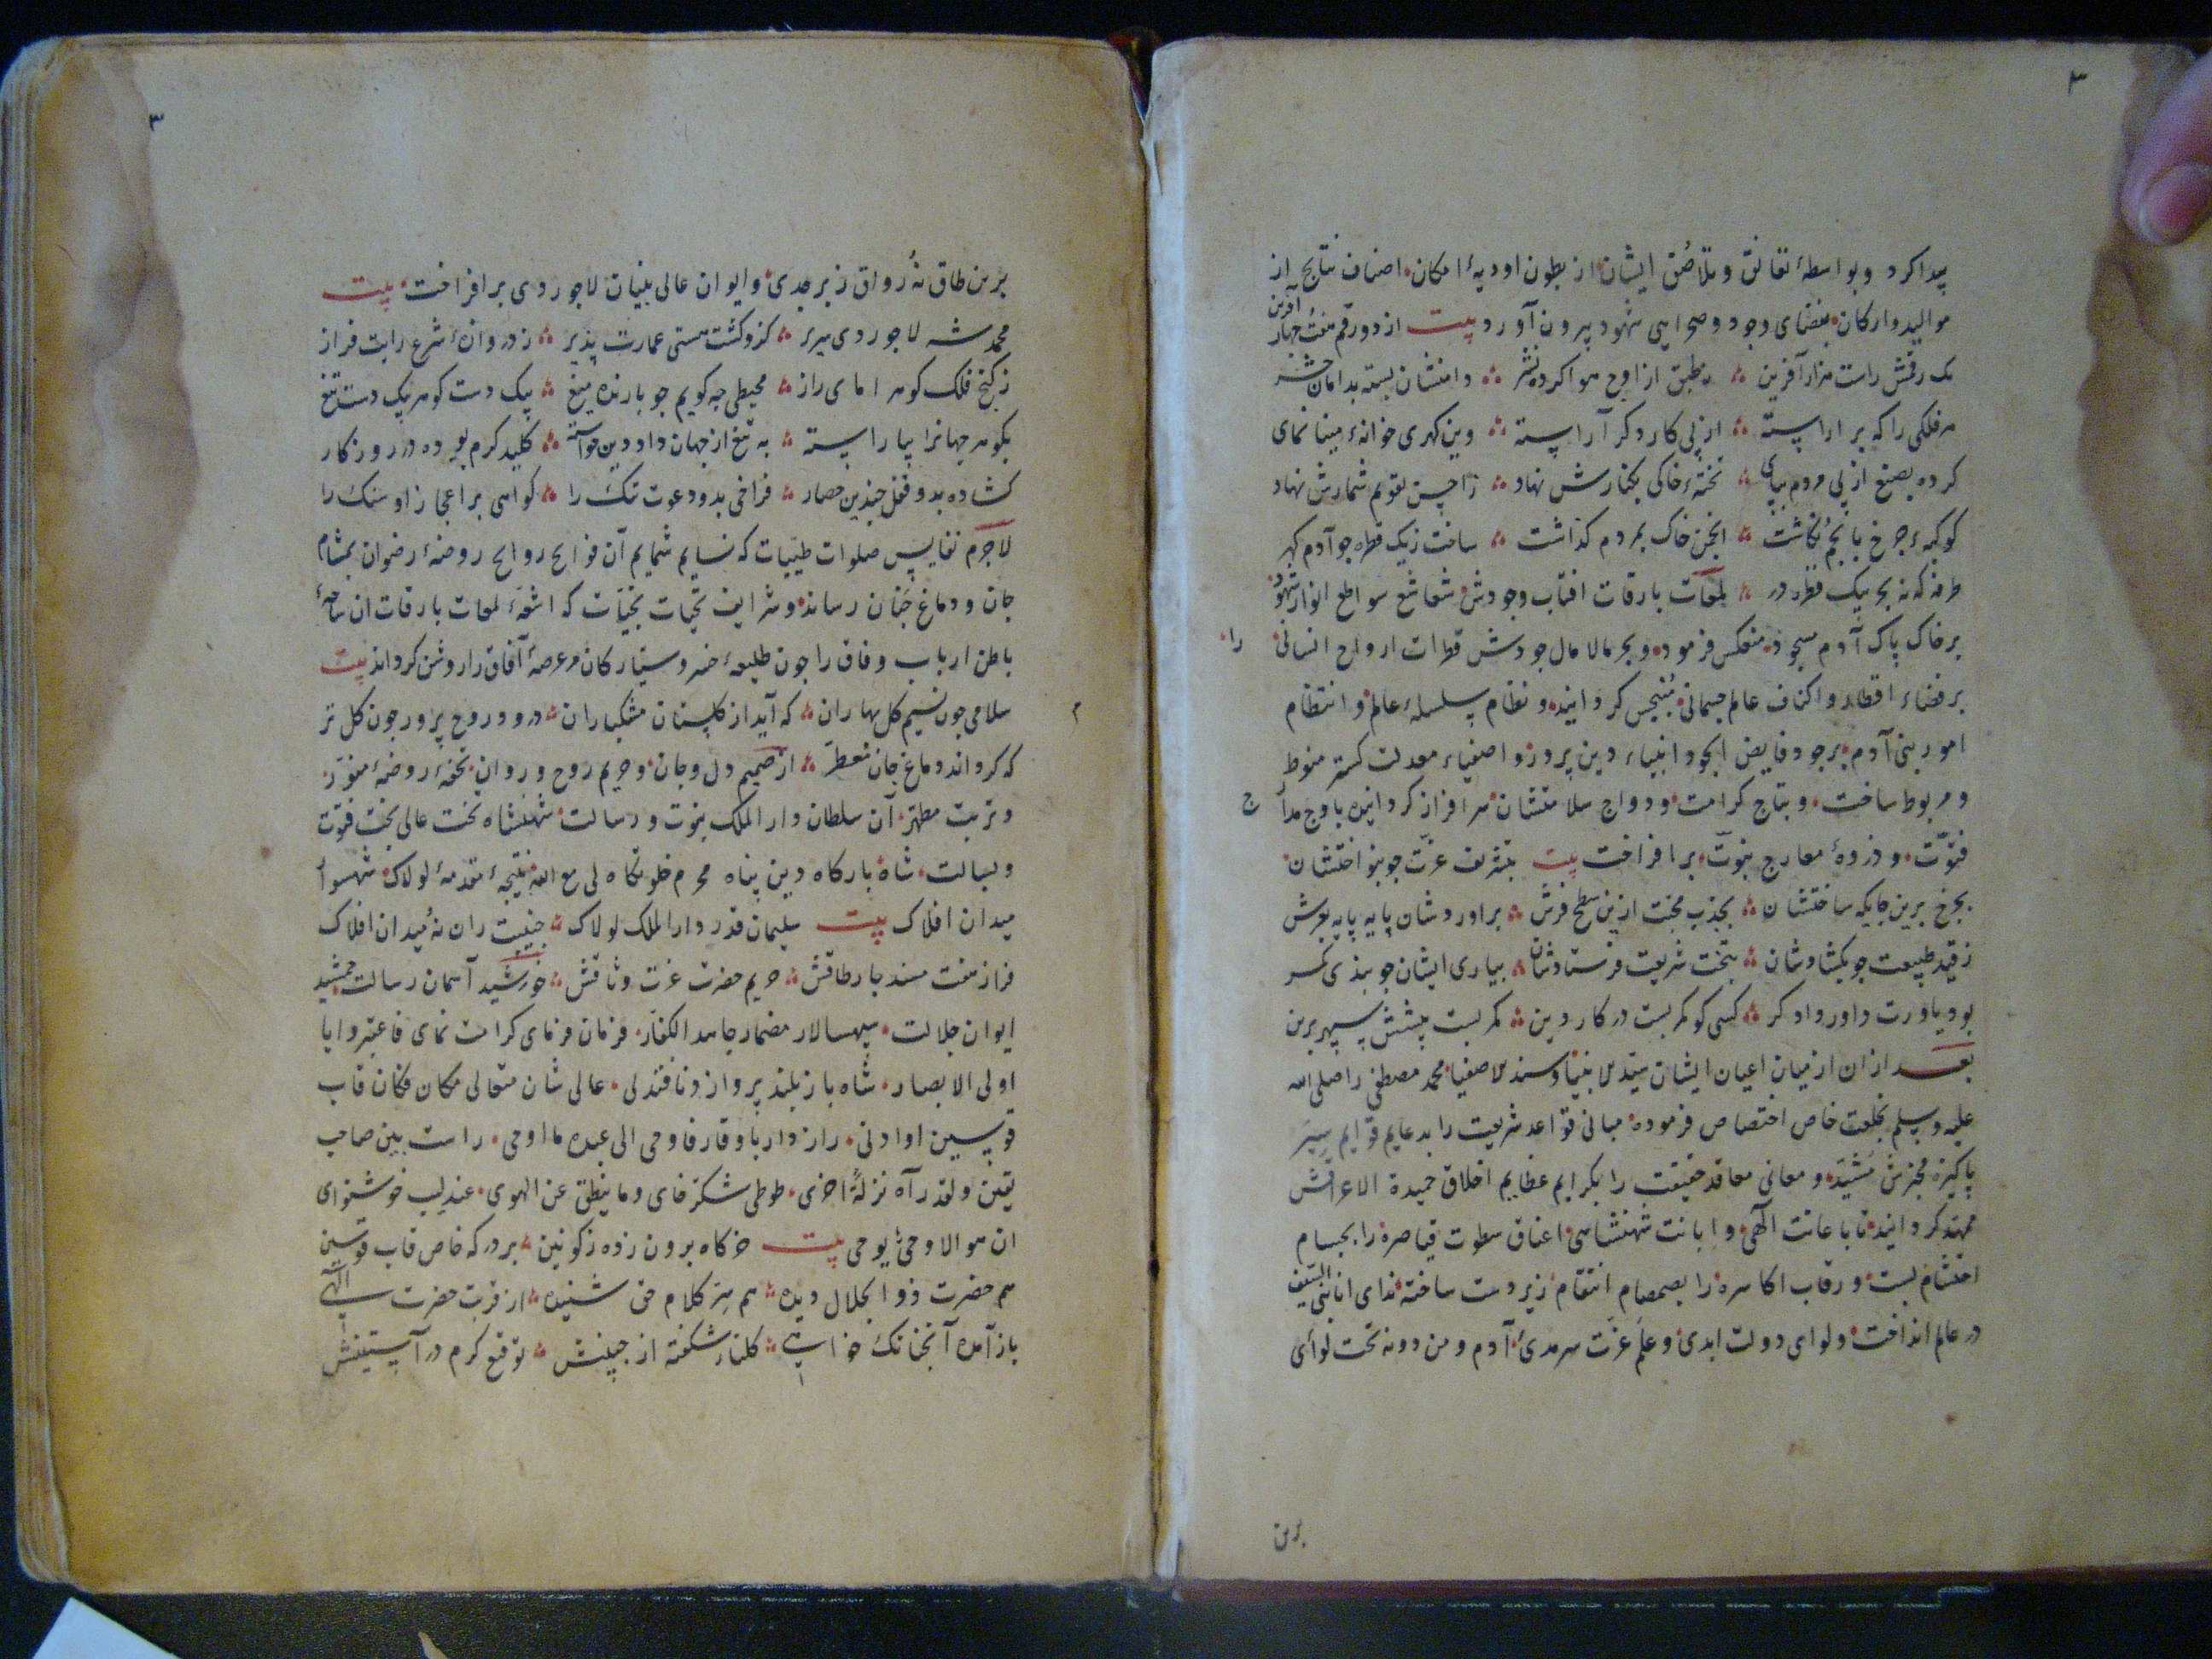 ۳
پیدا کرد و بواسطهٔ تعانق و تلاصق ایشان از بطون اودیهٔ امکان اصناف نتایج از
موالید و ارکان بفضای وجود و صحرای شهود بیرون آورد بیت از دو رقم هفت جهار آفرین
یک رقمش راست هزار آفرین نه طبق از اوج هوا کرده نشر دامنشان بسته بدامان حشر
هر فلکی را که بر آراسته از پی کار دکر آراسته وین کهری خوانهٔ مینا نمای
کرده بصنع از پی مردم بپای تختهٔ خاکی بکنارش نهاد زانجسن تقویم شمارش نهاد
کوکبهٔ جرخ بانجم نکاشت انجمن خاک بمردم کذاشت ساخت ز یک قطره جو آدم کهر
طرفه که نه بحر بیک قطره در لمعات بارقات افتاب وجودش شعاشع سواطع انوار شهود
بر خاک پاک آدم مسجود منعکس فرموده و بحر مالامال جودش قطرات ارواح انسانی را
بر فضاء اقطار و اکناف عالم جسمانی منبجس کردانیده و نظام سلسلهٔ عالم و انتظام
امور بنی آدم بر جود فایض الجود انبیاء دین پرور و اصفیاء معدلت کستر منوط
و مربوط ساخت و بتاج کرامت و دواج سلامتشان سر افراز کردانیده باوج مدارج
فتوّت و ذروهٔ معارج نبوّت بر افراخت بیت بتشریف عزّت جو بنواختشان
بجرخ برین جایکه ساختشان بجذب محبت ازین سطح فرش براوردشان پایه پایه بعرش
ز قید طبیعت جو بکشادشان بتخت شریعت فرستادشان بیاری ایشان جو بندی کمر
بود یاورت داور دادکر کسی کو کمر بست در کار دین کمر بست پیشش سپهر برین
بعد از ان از میان اعیان ایشان سیّد الانبیا و سند الاصفیا محمد مصطفی را صلی الله
علیه و سلم بخلعت خاص اختصاص فرموده مبانی قواعد شریعت را بدعایم قوایم سیر
پاکیزه مخبرش مشیّد و معانی معاقد حقیقت را بکرایم عظایم اخلاق حمیدة الاعراقش
ممهّد کردانیده تا باعانت الٓهی و ابانت شهنشاهی اعناق سطوت قیاصره را بحسام
احتشام بست و رقاب اکاسره را بصمصام انتقام زیردست ساخته ندای انا نبی السیف
در عالم انداخت و لوای دولت ابدی و علم عزّت سرمدی آدم و من دونه تحت لوائی
برین
۳
برین طاق نه رواق زبرجدی و ایوان عالی بنیان لاجوردی بر افراخت بیت
محمد شه لاجوردی سریر کزو کشت هستی عمارت پذیر ز دروازهٔ شرع رایت فراز
ز کنج فلک کوهر امای راز محیطی جه کویم جو بارنده میغ بیک دست کوهر بیک دست تیغ
بکوهر جهانرا بیاراسته به تیغ از جهان داد دین خواسته کلید کرم بوده در روز کار
کشاده بدو قفل جندین حصار فراخی بدو دعوت تنک را کواهی بر اعجاز او سنک را
لاجرم نفایس صلوات طیّبات که نسایم شمایم آن فوایح روایح روضهٔ رضوان بمشام
جان و دماغ جنان رساند و شرایف تحیّات نجیّات که اشعّهٔ لمعات بارقات ان ساحهٔ
باطن ارباب وفاق را جون طلیعهٔ خسرو سیّارکان عرصهٔ آفاق را روشن کرداند بیت
سلامی جون نسیم کل بهاران که آید از کلستان مشکباران درود روح پرور جون کل تر
که کرداند دماغ جان معطّر از صمیم دل و جان و حریم روح و روان تحفهٔ روضهٔ منوّر
و تربت مطهّر آن سلطان دار الملک نبوّت و رسالت شهنشاه تخت عالی بخت فتوّت
و بسالت شاه بارکاه دین پناه محرم خلوتکاه لی مع الله نتیجهٔ مقدمهٔ لولاک شهسوار
میدان افلاک بیت سلیمان قدر دار الملک لولاک جنیبت ران نه میدان افلاک
فراز هفت مسند جار طاقش حریم حضرت عزّت وثاقش خورشید آسمان رسالت جمشید
ایوان جلالت سپهسالار مضمار جاهد الکفّار فرمان فرمای کرامت نمای فاعتبروا یا
اولی الابصار شاه باز بلند پرواز دنا فتدلی عالی شان متعالی مکان فکان قاب
قوسین او ادنی راز دار با وقار فاوحی الی عبده ما اوحی راست بین صاحب
یقین و لقد رآه نزلةً اخری طوطی شکر خای و ما ینطق عن الهوی عندلیب خوشنوای
ان هو الا وحیٌ یوحی بیت خرکاه برون زده ز کونین بر درکه خاص قاب قوسین
هم حضرت ذو الجلال دیده هم سرّ کلام حق شنیده از قربت حضرت الٓهی
باز آمده آنجنانک خواهی کلنار شکفته از جبینش توقیع کرم در آستینش